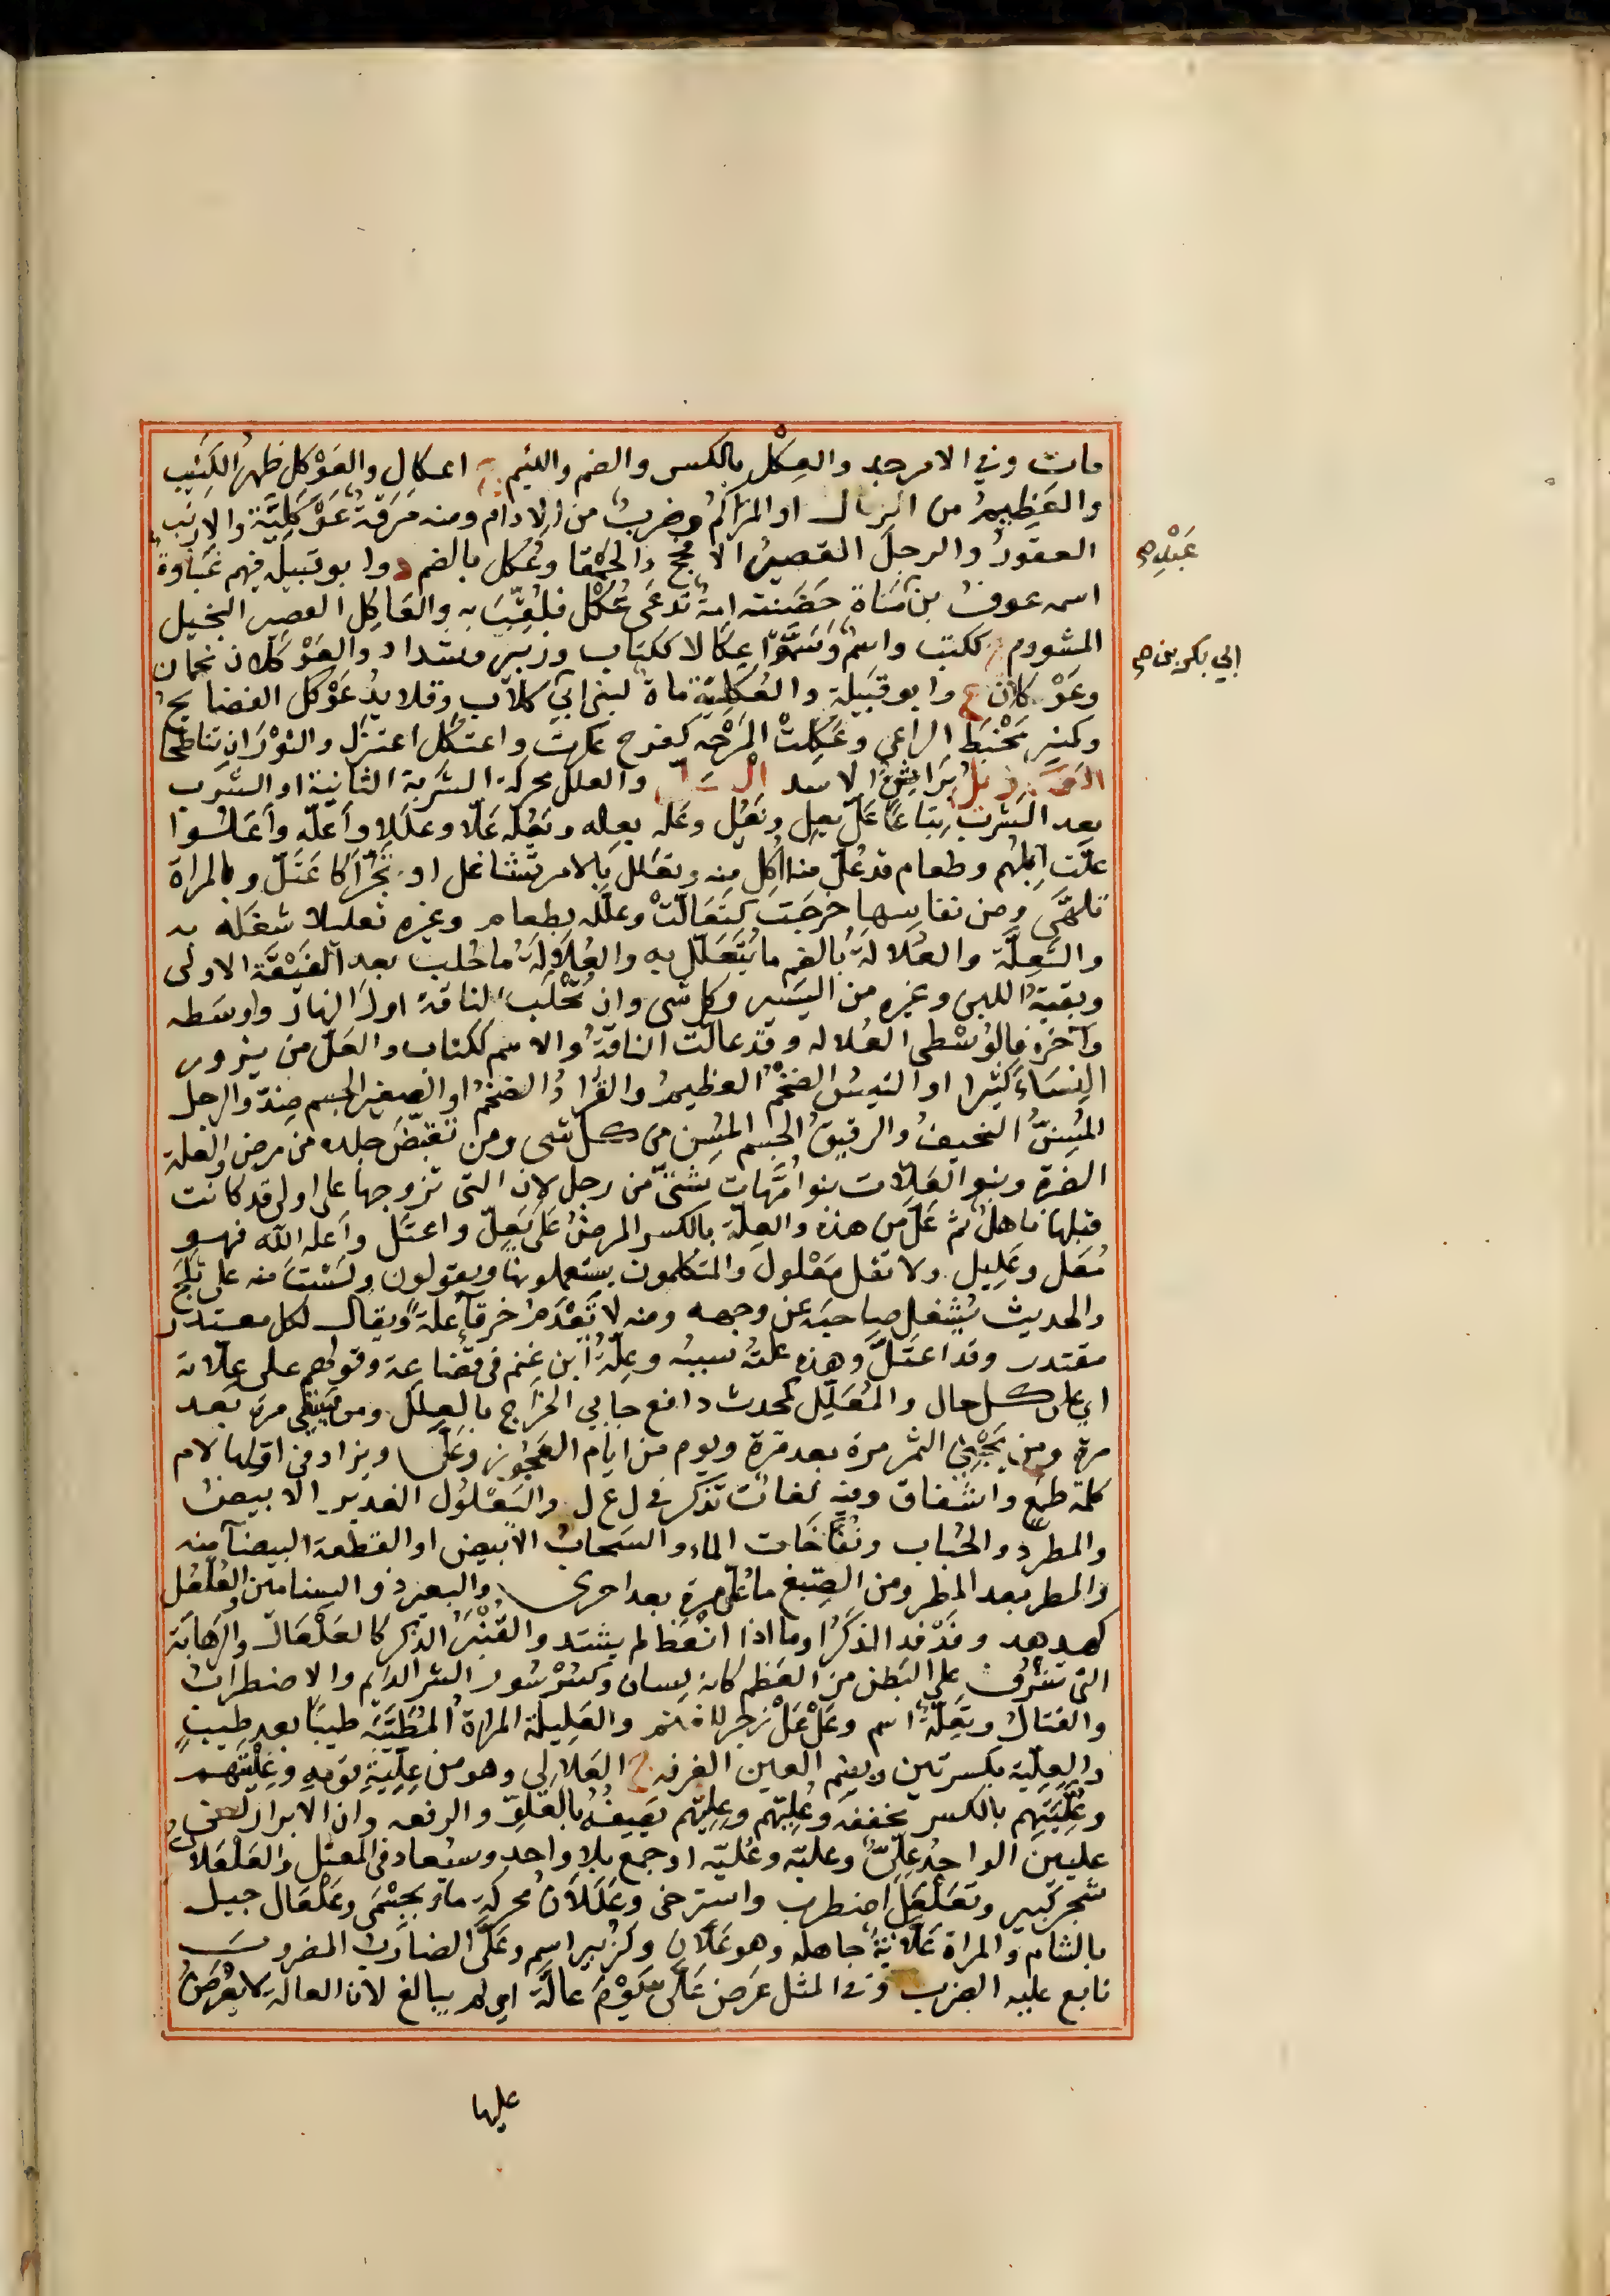 مات وفي الامر جد والعِكْل بالكسر والضم واللئيم ج اعكال والعَوْكل ظهرُ الكَثيب
والعَظِيمُ من الرمال او المتراكمُ وضربٌ من الادام ومنه مَرَقَةٌ عَوْكَلِيَّة والارنب
العقورُ والرجلُ القصيرُ الافحج والحمقا وعُكل بالضم د وابو قبيلة فيهم غَباوةٌ
اسمه عوف بن مَناة حَضَنته امةٌ تُدعَى عُكْل فلُقّب به والعَاكِل القصير البخيل
المشووم ككتب واسمٌ وسَمَّوْا عِكالا ككتاب وزبير وشداد والعَوْكلان نجمان
وعَوْكلان ع وابو قبيلة والعُكلية ماة لبني ابي كلاب وقلايدُ عَوْكل الفضايح
وكمنبر مِخْبَط الراعي وعَكِلتْ المَسْرَجة كفرح عكرت واعتكل اعتزل والثوْرَان تناطحا
بَرَاثِنُ الاسد والعلل محركة الشربة الثانية او الشرب
بعد الشرب تباعًا عَلّ يعِل ويَعُل وعَله يعِله ويَعُلّه عَلًّا وعلَلا وأَعلّه وأَعَلُّوا
علّت اِبلهُم وطعام قد عُلّ منه اُكِل منه وتعَلل بالامر تشاغل او تجزّأ كاعتلّ وبالمراة
تلهَّى ومن نفاسها خرجَت كتعَالّتْ وعلله بطعام وغيره تعليلا شغله به
والتَّعِلّة والعُلالةُ بالضم ما يُتَعلّل به والعُلالةُ ما حُلب بعد الفَيْقة الاولى
وبقيةُ اللبن وغيره من اليَسير وكل شى وان تُحْلَب الناقة اول النهار واوسَطه
وآخره فالوُسْطى العُلاله وقد عالّت الناقةُ والاسم ككتاب والعَلّ من يزور
النِسَاءَ كثيرا او التَيسُ الضخْمُ العظيمُ والقُرَادُ الضخمُ او الصغير الجسم ضِدّ والرجل
المُسِنُّ النحيفُ والرقيقُ الجسم المُسِن من كل شى ومن تَقَبّضَ جلده من مرض والعلة
الضرة وبنو العَلاّت بنو امّهات شتّى من رجل لان التى تزوجها على اولى قد كانت
قبلها ناهلٌ ثم عَلّ من هذه والعِلّة بالكسر المرضُ عَلّ يَعِلّ واعتَلّ واَعله الله فهو
مُعَل وعَلِيل ولا تقل مَعْلول والمتكلمون يستعملونها ويقولون ولسْتَ منه على ثَلَج
والحديث يُشغل صاحبَه عن وجهه ومنه لا تَعْدَم خرقآ علةً ويقال لكل معتذر
مقتدر وقد اعتَلّ وهذه علته سببُه وعِلّةُ ابن غَنم فى قضَاعة وقولهم على عِلّاته
اي على كل حال والمُعَلِّل كمحدث دافع جابي الخَرَاج بالعِلَل ومن يَسْقي مرة بعد
مرة ومن يَجْني الثمر مرة بعد مَرة ويوم من ايام العَجُوز وعَلّ ويزاد فى اولها لام
كلمة طمَع واشفاق وفيه لغات تُذكر فى ل ع ل واليَعْلُول الغدير الابيضُ
والمطرد والحُباب ونُفّاخَات الماء والسَحابُ الابيض او القطعة البيضآ منه
والمطر بعد المطر ومن الصِبغ ما عُل مرة بعد اخرى والبعير ذو السنامَين والعُلعُل
كهدهد وفَدْفد الذكَرُ او ما اذا انْعَظ لم يشتد والقُنْبرُ الذكر كالعَلْعَال والرَهَابَة
التى تشرف على البَطن من العَظم كانه لسان وكسُرْسُور الشر الدايم والاضطرابُ
والقتالُ وتَعِلّةُ اسم وعَلْ عَلْ زجر للغنم والعَلِيلة المراةُ المُطَيَّبة طيبًا بعد طِيبٍ
والعِلّية بكسرتين وبضم العين الغرفة ج العَلالي وهو من عِلِّيّةِ قومه وعِلْيتهم
وعُلِّيَتِهم بالكسر مخففه وعُلّيهم وعِليّهم يَصِيفُهُ بالعُلوّ والرفعه وان الابرار لفى
عليين الواحدُ عِلِّىّ وعليّه وعُليّه او جمع بلا واحد وسيُعاد فى المعتل والعَلْعَلان
شجر كبير وتعَلعَل اضطرب واسترخى وعَلَلانُ محركة ماء بحِسْمَى وعَلْعَال جبل
بالشام والمراة عَلّانةٌ جاهله وهو عَلّان وكزُبير اسم وعَلّ الضاربُ المضروبَ
تابع عليه الضرب وفى المثل عَرَض عَلَىّ سَوْمَ عالّة اي لم يبالغ لان العالّة لا يُعْرَضُ
عليها
عَبْلةٍ صح
ابي بكر بن صح